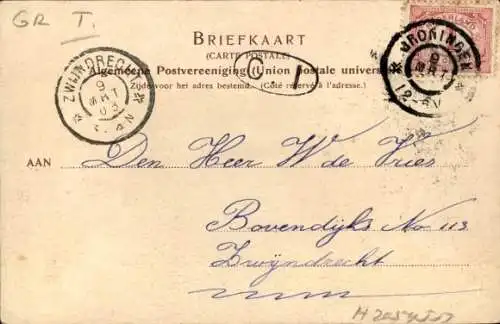 GR T.
BRIEFKAART
(CARTE POSTALE)
Algemeene Postvereeniging (Union postale univers
Zijde voor het adres bestemd. (Côté réservé à l'adresse.)
ZWIJNDRECHT
9
MRT
03
GRONINGEN
9
MRT
12-6N
1
AAN Den Heer W de Vries
Bovendijks No 113
Zwijndrecht